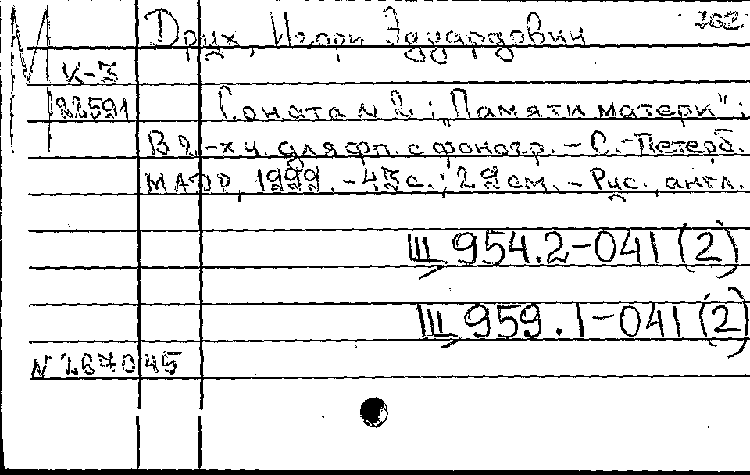 М Друх, Игорь Эдуардович 202
К-3
22591 Соната № 2: "Памяти матери":
В 2-х ч. для фп. с фоногр. – С.-Петерб.
1999. – 43 с.; 29 см. – Рус., англ.
Щ 954.2-041 (2)
Щ 959.1-041 (2)
N 267045